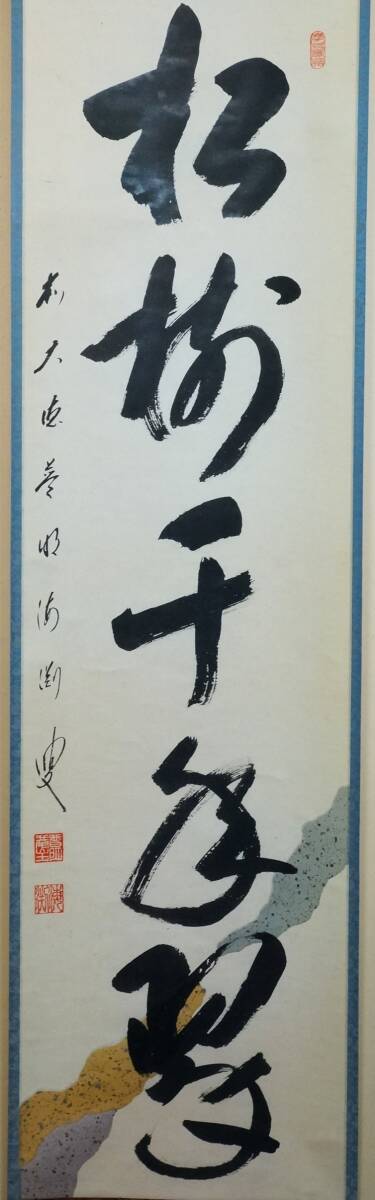 松樹千年翠
前大徳 明海渕叟